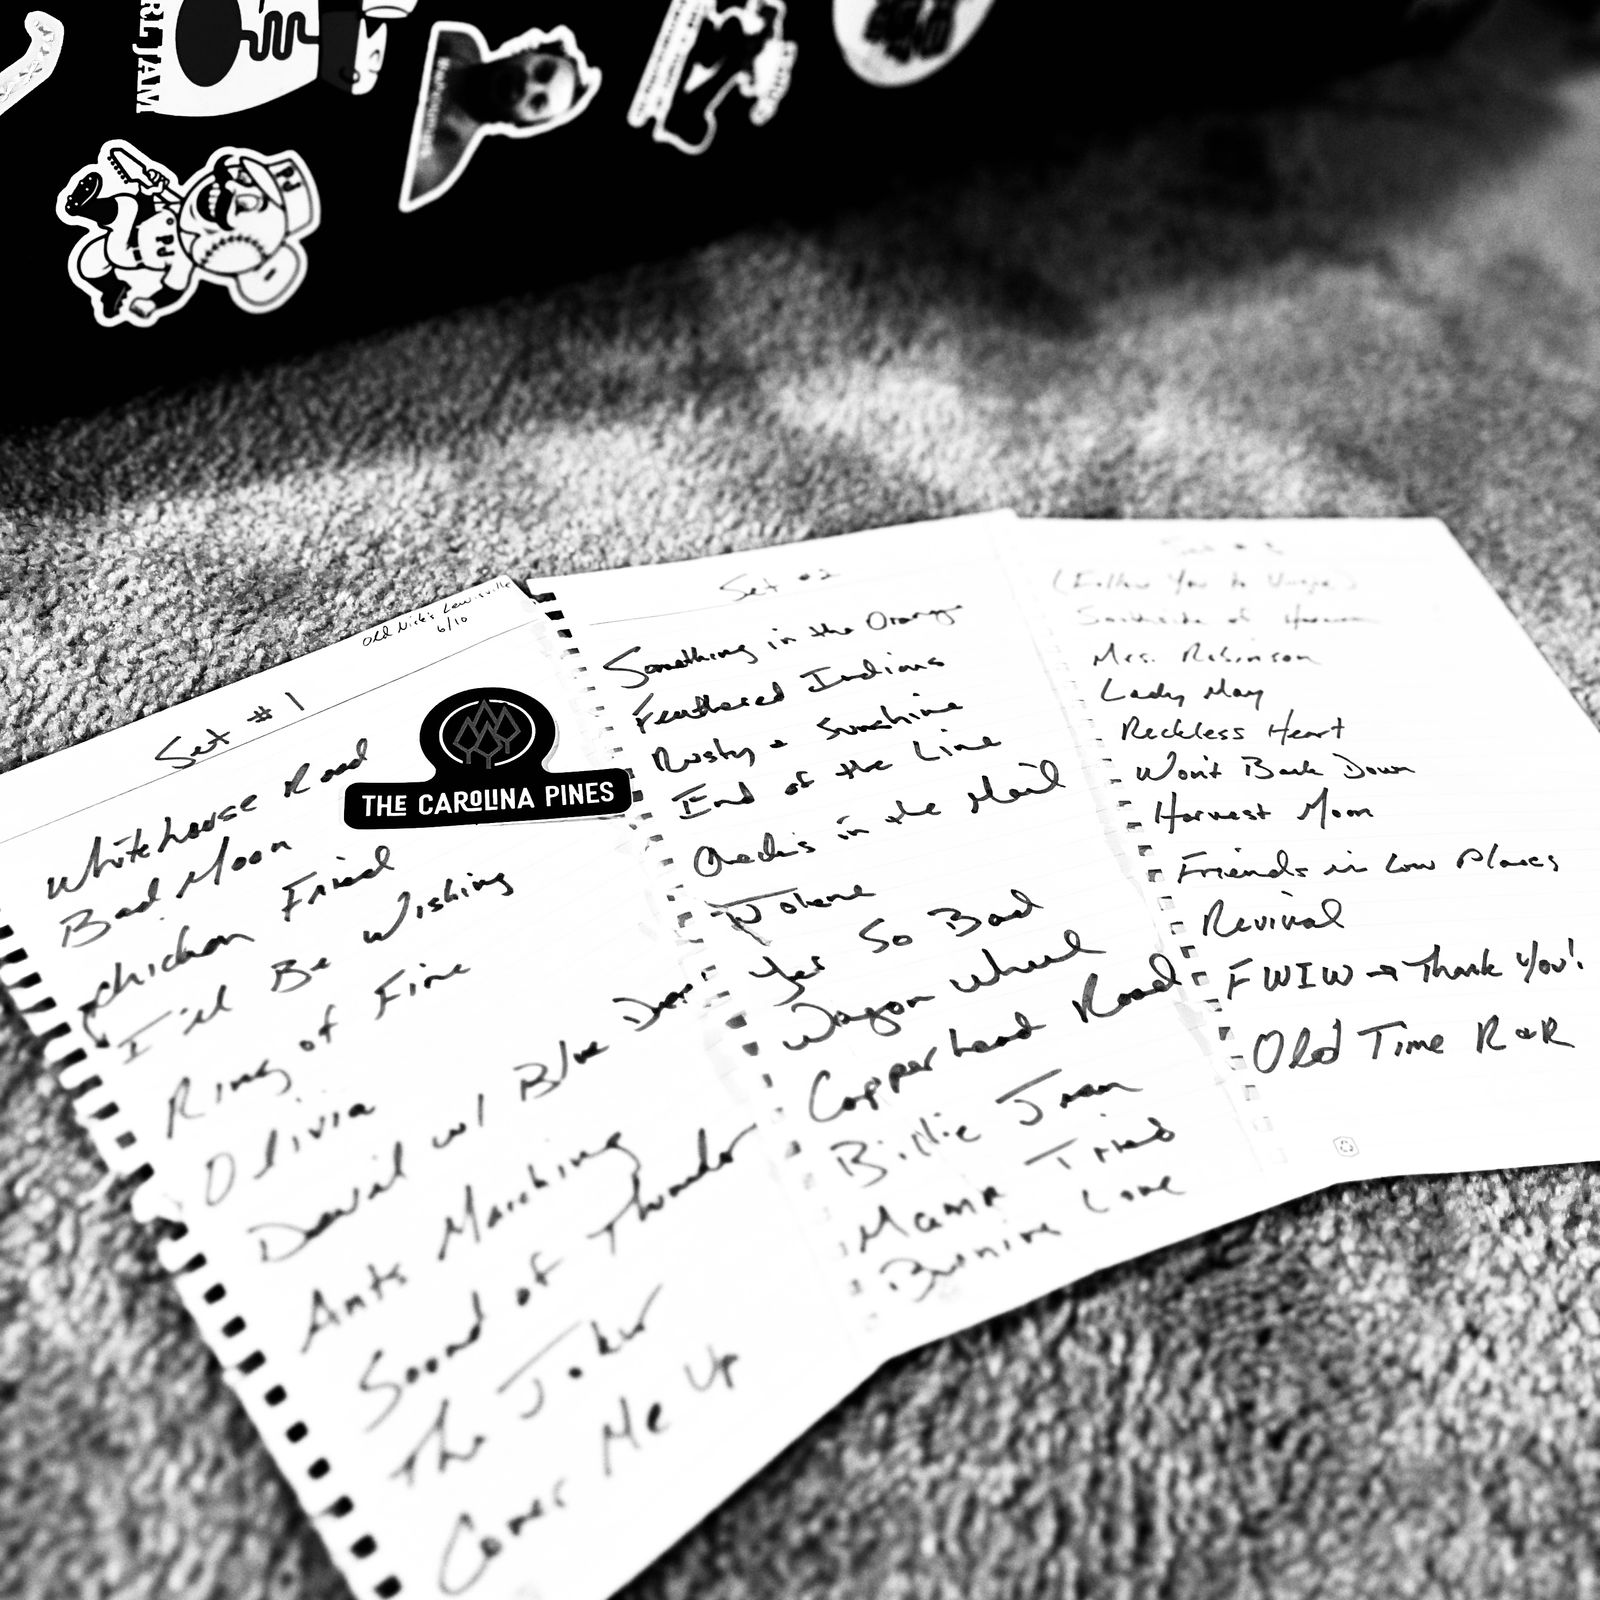 RL JAM
PJ
PJ
Old Nick's Lewisville
6/10
Set # 1
THE CAROLINA PINES
Whitehouse Road
Bad Moon
Chicken Fried
I'll Be Wishing
Ring of Fire
Olivia
Devil w/ Blue Dress
Ants Marching
Sound of Thunder
The Joker
Comes Me Up
Set #2
Something in the Orange
Feathered Indians
Rusty & Sunshine
End of the Line
Check's in the Mail
Jolene
Yer So Bad
Wagon Wheel
Copperhead Road
Billie Jean
Mama Tried
Burning Love
Set #3
(Follow You to Virgie)
Southside of Heaven
Mrs. Robinson
Lady May
Reckless Heart
Won't Back Down
Harvest Moon
Friends in Low Places
Revival
FWIW → Thank You!
Old Time R&R